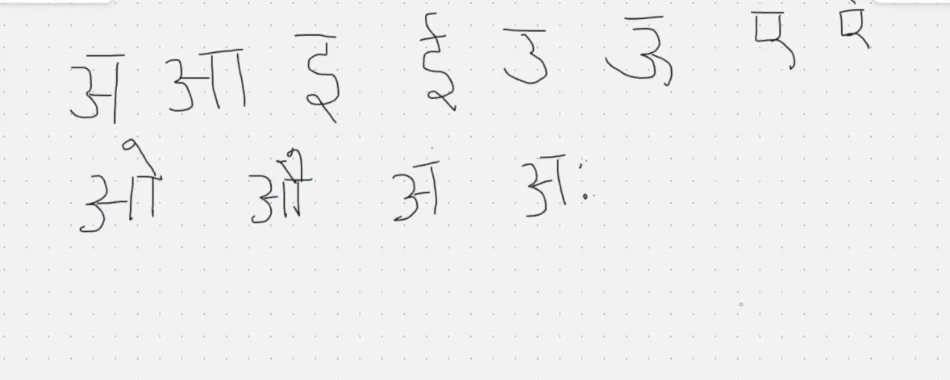 अ आ इ ई उ ऊ ए ऐ
ओ औ अं अः